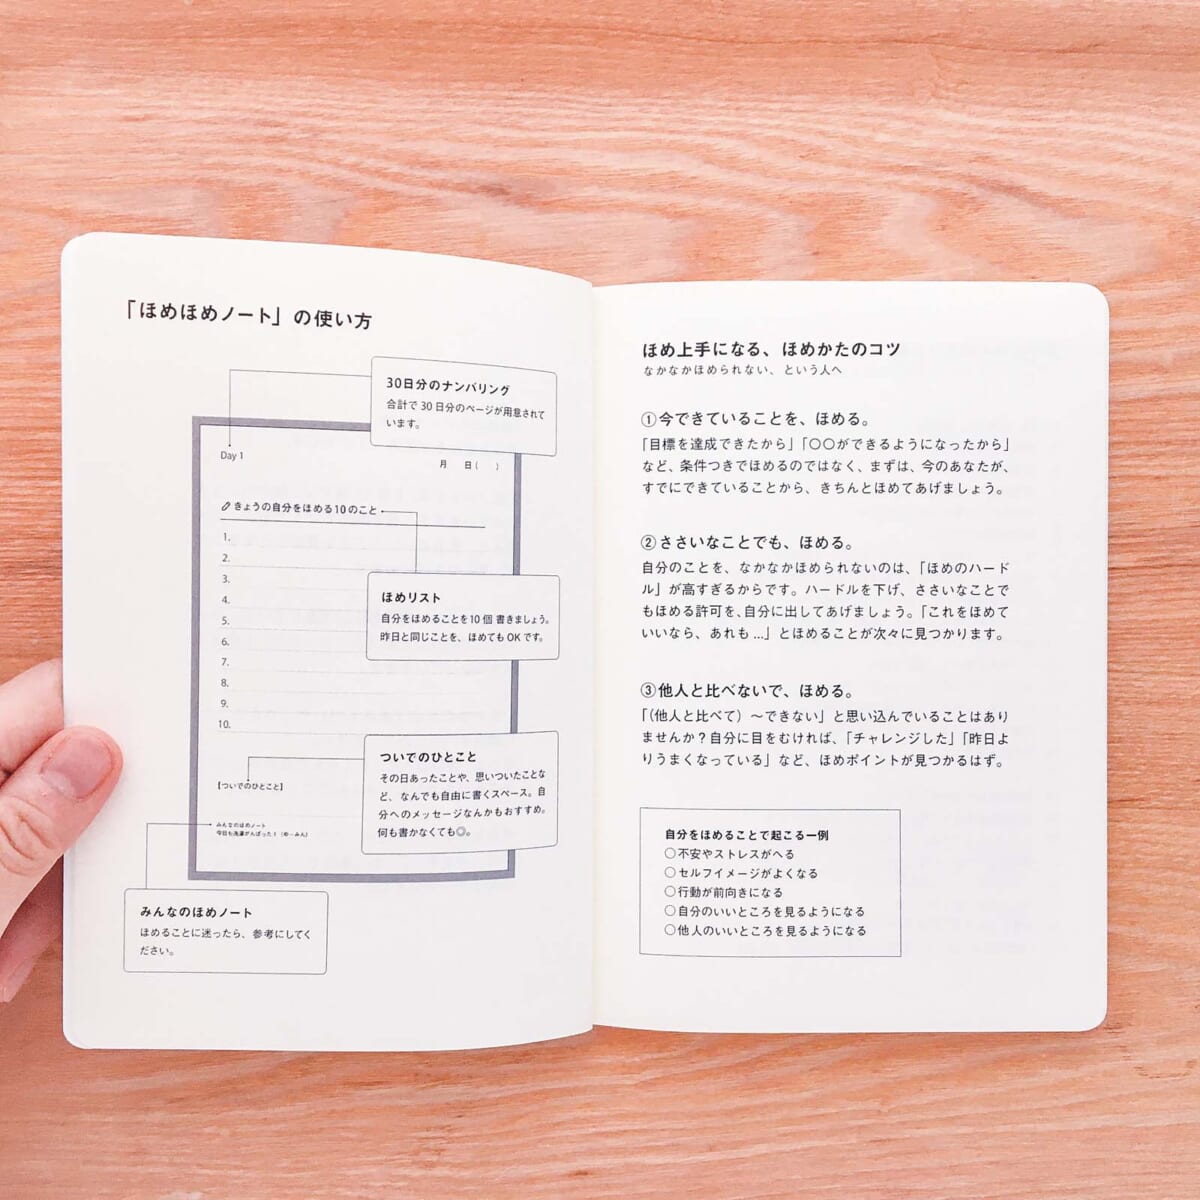 「ほめほめノート」の使い方
30日分のナンバリング
合計で 30 日分のページが用意されて
います。
Day 1
月 日( )
きょうの自分をほめる10のこと
1.
2.
3.
4.
5.
6.
7.
8.
9.
10.
ほめリスト
自分をほめることを10個 書きましょう。
昨日と同じことを、ほめてもOKです。
ついでのひとこと
その日あったことや、思いついたことな
ど、なんでも自由に書くスペース。自
分へのメッセージなんかもおすすめ。
何も書かなくても◎。
【ついでのひとこと】
みんなのほめノート
今日も洗濯がんばった！（めーみん）
みんなのほめノート
ほめることに迷ったら、参考にしてく
ださい。
ほめ上手になる、ほめかたのコツ
なかなかほめられない、という人へ
①今できていることを、ほめる。
「目標を達成できたから」「○○ができるようになったから」
など、条件つきでほめるのではなく、まずは、今のあなたが、
すでにできていることから、きちんとほめてあげましょう。
②ささいなことでも、ほめる。
自分のことを、なかなかほめられないのは、「ほめのハード
ル」が高すぎるからです。ハードルを下げ、ささいなことで
もほめる許可を、自分に出してあげましょう。「これをほめて
いいなら、あれも ...」とほめることが次々に見つかります。
③他人と比べないで、ほめる。
「（他人と比べて）〜できない」と思い込んでいることはあり
ませんか？自分に目をむければ、「チャレンジした」「昨日よ
りうまくなっている」など、ほめポイントが見つかるはず。
自分をほめることで起こる一例
○不安やストレスがへる
○セルフイメージがよくなる
○行動が前向きになる
○自分のいいところを見るようになる
○他人のいいところを見るようになる